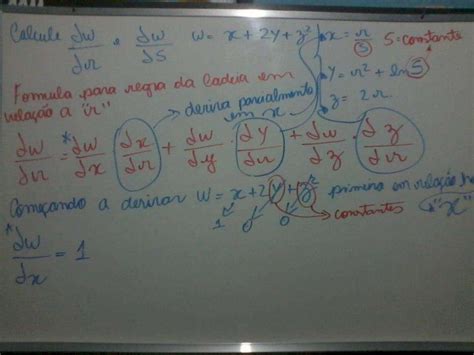 Calcule dw/dr e dw/ds w = x + 2y + z² x = r/s S = constante
y = r² + ln s
z = 2r
Formula para regra da cadeia em
relação a "r" → deriva parcialmente em x
dw/dr = *dw/dx · dx/dr + dw/dy · dy/dr + dw/dz · dz/dr
Começando a derivar w = x + 2y + z² primeira em relação
1 0 0 constantes "x"
*dw/dx = 1